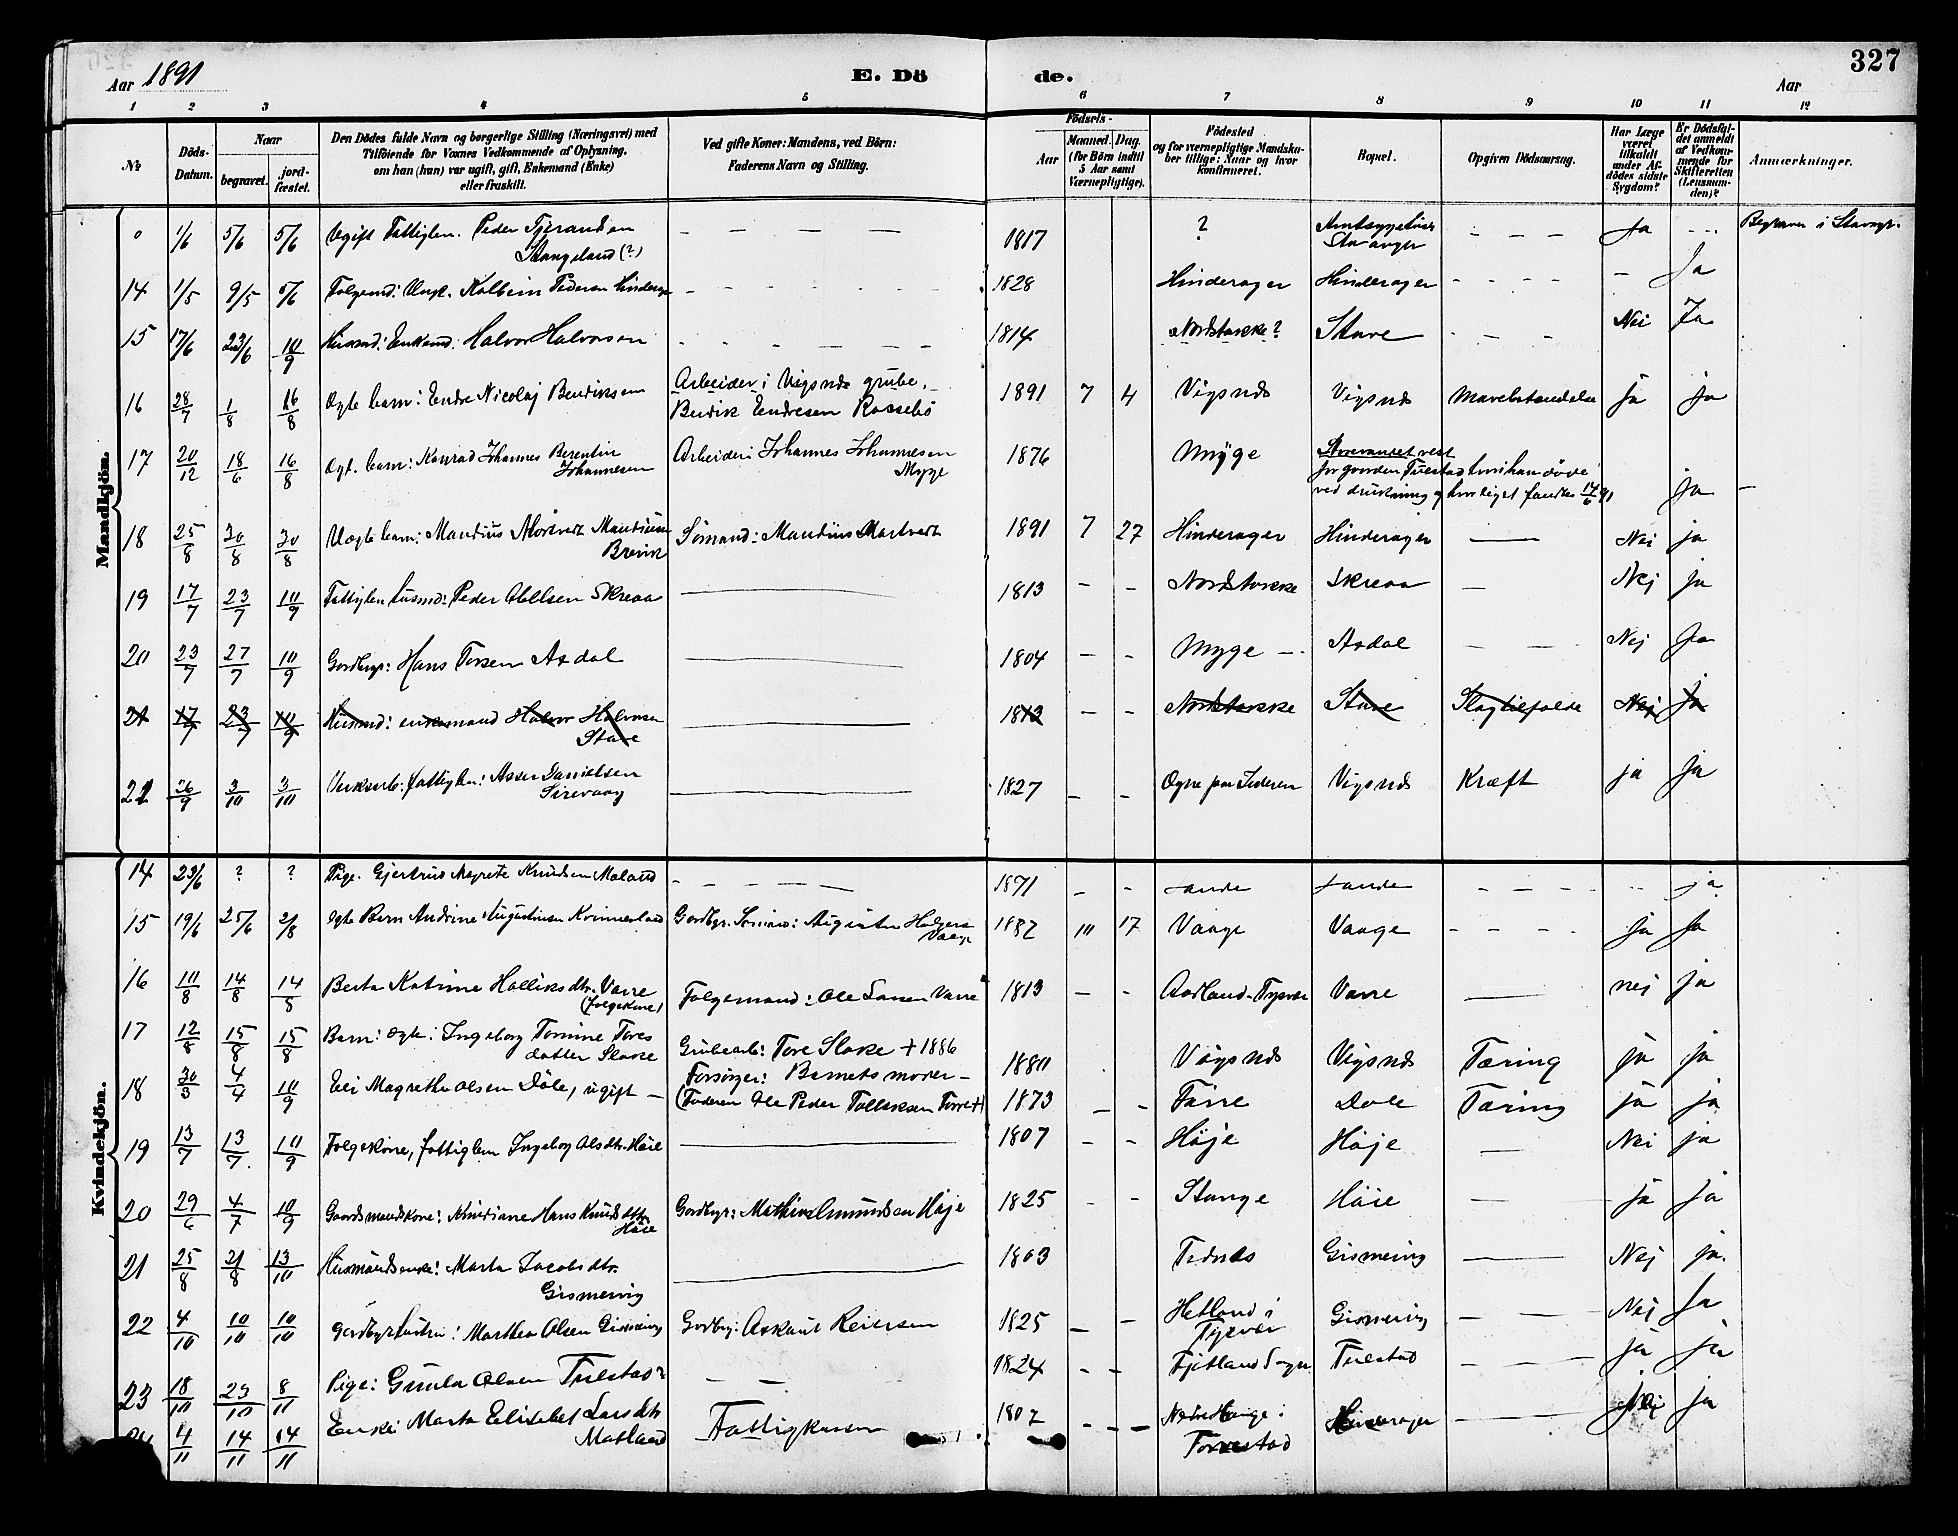 327
Aar 1891
E. Dö
de.
Aar
1 2 3 4 5 6 7 8 9 10 11 12
No
Döds-Datum.
Naar
begravet.
jord-fæstet.
Den Dödes fulde Navn og borgerlige Stilling (Næringsvei) med
Tilföiende for Voxnes Vedkommende af Oplysning,
om han (hun) var ugift, gift, Enkemand (Enke)
eller fraskilt.
Ved gifte Koner: Mandens, ved Börn:
Faderens Navn og Stilling.
Födsels-
Aar
Maaned. Dag.
(for Börn indtil
5 Aar samt
Værnepligtige).
Födested
og for værnepligtige Mandska-
ber tillige: Naar og hvor
konfirmeret.
Bopæl.
Opgiven Dödsaarsag.
Har Læge
været
tilkaldt
under Af-
dödes sidste
Sygdom?
Er Dödsfal-
det anmeldt
af Vedkom-
mende for
Skifteretten
(Lensman-
den)?
Anmærkninger.
Mandkjön.
0 1/6 5/6 5/6 Ugift Fattiglem. Peder Tjerandsen Stangeland (?) — — — — 1817 ? Stavanger — — — Ja ... Begraven i Stavngr.
14 1/5 9/5 5/6 Folgemd: Kolbein Pedersen Hinderager 1828 Hinderager Hinderager — — — — — Ja
15 17/6 23/6 10/9 Husmd: Enkemd: Halvor Halvorsen 1814 Nordstokke? Stave — — — Nei Ja
16 28/7 1/8 16/8 Ægte barn: Endre Nicolaj Bendiksen Arbeider i Vigsnæs grube, Bendik Endresen Rossebö 1891 7 4 Vigsnæs Vigsnæs Mavebetændelse Ja Ja
17 20/12 18/6 16/8 Ægt. barn: Konrad Johannes Berentin Johannesen Arbeider: Johannes Johannesen Myge 1876 Myge Storevandet vest for gaarden Tuestad hvori han döde ved drukning og hvor liget fandtes 14/6 91 Ja —
18 25/8 30/8 30/8 Uægte barn: Mandius Mortvedt Mandiusen Brevik Sömand: Mandius Mortvedt 1891 7 27 Hinderager Hinderager — Nei ja
19 17/7 23/7 10/9 Fattiglem husmd: Peder Skreaa — 1813 — — Nordstokke Skreaa — Nej Ja
20 23/7 27/7 10/9 Gordbgr: Hans Torsen Asdal — 1804 — — Myge — Asdal — — Nej Ja
21 17/7 23/7 10/9 Husmd: enkemand Halvor Halvorsen Stave — 1813 — — Nordstokke Stave Slagtilfælde Nej Ja
21 26/9 3/10 3/10 fattiglem: Asser Danielsen Sirevaag — 1827 — — Ogne paa Jæderen Vigsnæs Kræft ja Ja
Kvindekjön.
14 23/6 ? ? Pige. Gjertrud Magrete Knudsen Maland — — — — — 1871 — — Sande Sande — — — — ja
15 19/6 25/6 2/8 Ægte Barn Andrine Augustinsen Kvinnesland Gordbgr. Sömand: Augustin Vaage 1882 10 17 Vaage Vaage — — — — Ja Ja
16 10/8 14/8 14/8 Berta Katrine Holliksdtr. Varre (folgekone) Folgemand: Ole Larsen Varre 1813 — — Aarland — Tysvær Varre — nej ja
17 12/8 15/8 15/8 Barn: ægte: Ingeborg Tomine Tores datter Stokke Grubearb: Tore Stokke + 1886 Forsörger: Barnets moder — 1880 Vigsnæs Vigsnæs Tæring Ja Ja
18 30/3 4/4 10/9 Eli Magrethe Olsen Döle, ugift — (Faderen Ole Peder Tolleksen Förre +) 1873 — — Förre Dole Tæring Ja Ja
19 13/7 13/7 10/9 Folgekone, fattiglem Ingeborg Olsdtr. Höie — 1807 — — Höje Höje — Nei ja
20 29/6 4/7 10/9 Gaardsmandskone: Hans Knudsdtr. Höie Gordbgr: Mathias Amundsen Höje 1825 — — Stange Höie — Ja Ja
21 25/8 31/8 13/10 Husmandsenke: Marta Jacobsdtr. Gismervig — 1803 Tednæs Gismervig — Nej ja
22 4/10 10/10 10/10 Gordbgrhustru: Marthea Olsen Gismervig Gordbgr: Askaut Reiersen 1825 — — Hetland i Tysvær Gismervig — Nej Ja
23 18/10 23/10 8/11 Pige: Gunla Olsen Tuestad — — 1824 — — Fjetland Sogn Tuestad — Ja Ja
4/11 14/11 14/11 Enke: Marta Elisabet Larsdtr Matland Fattigkassen 1802 — — Nedrehauge i Torvestad Hinderager — Nei Ja